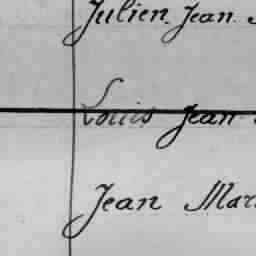 Julien Jean
Louis Jean
Jean Mar